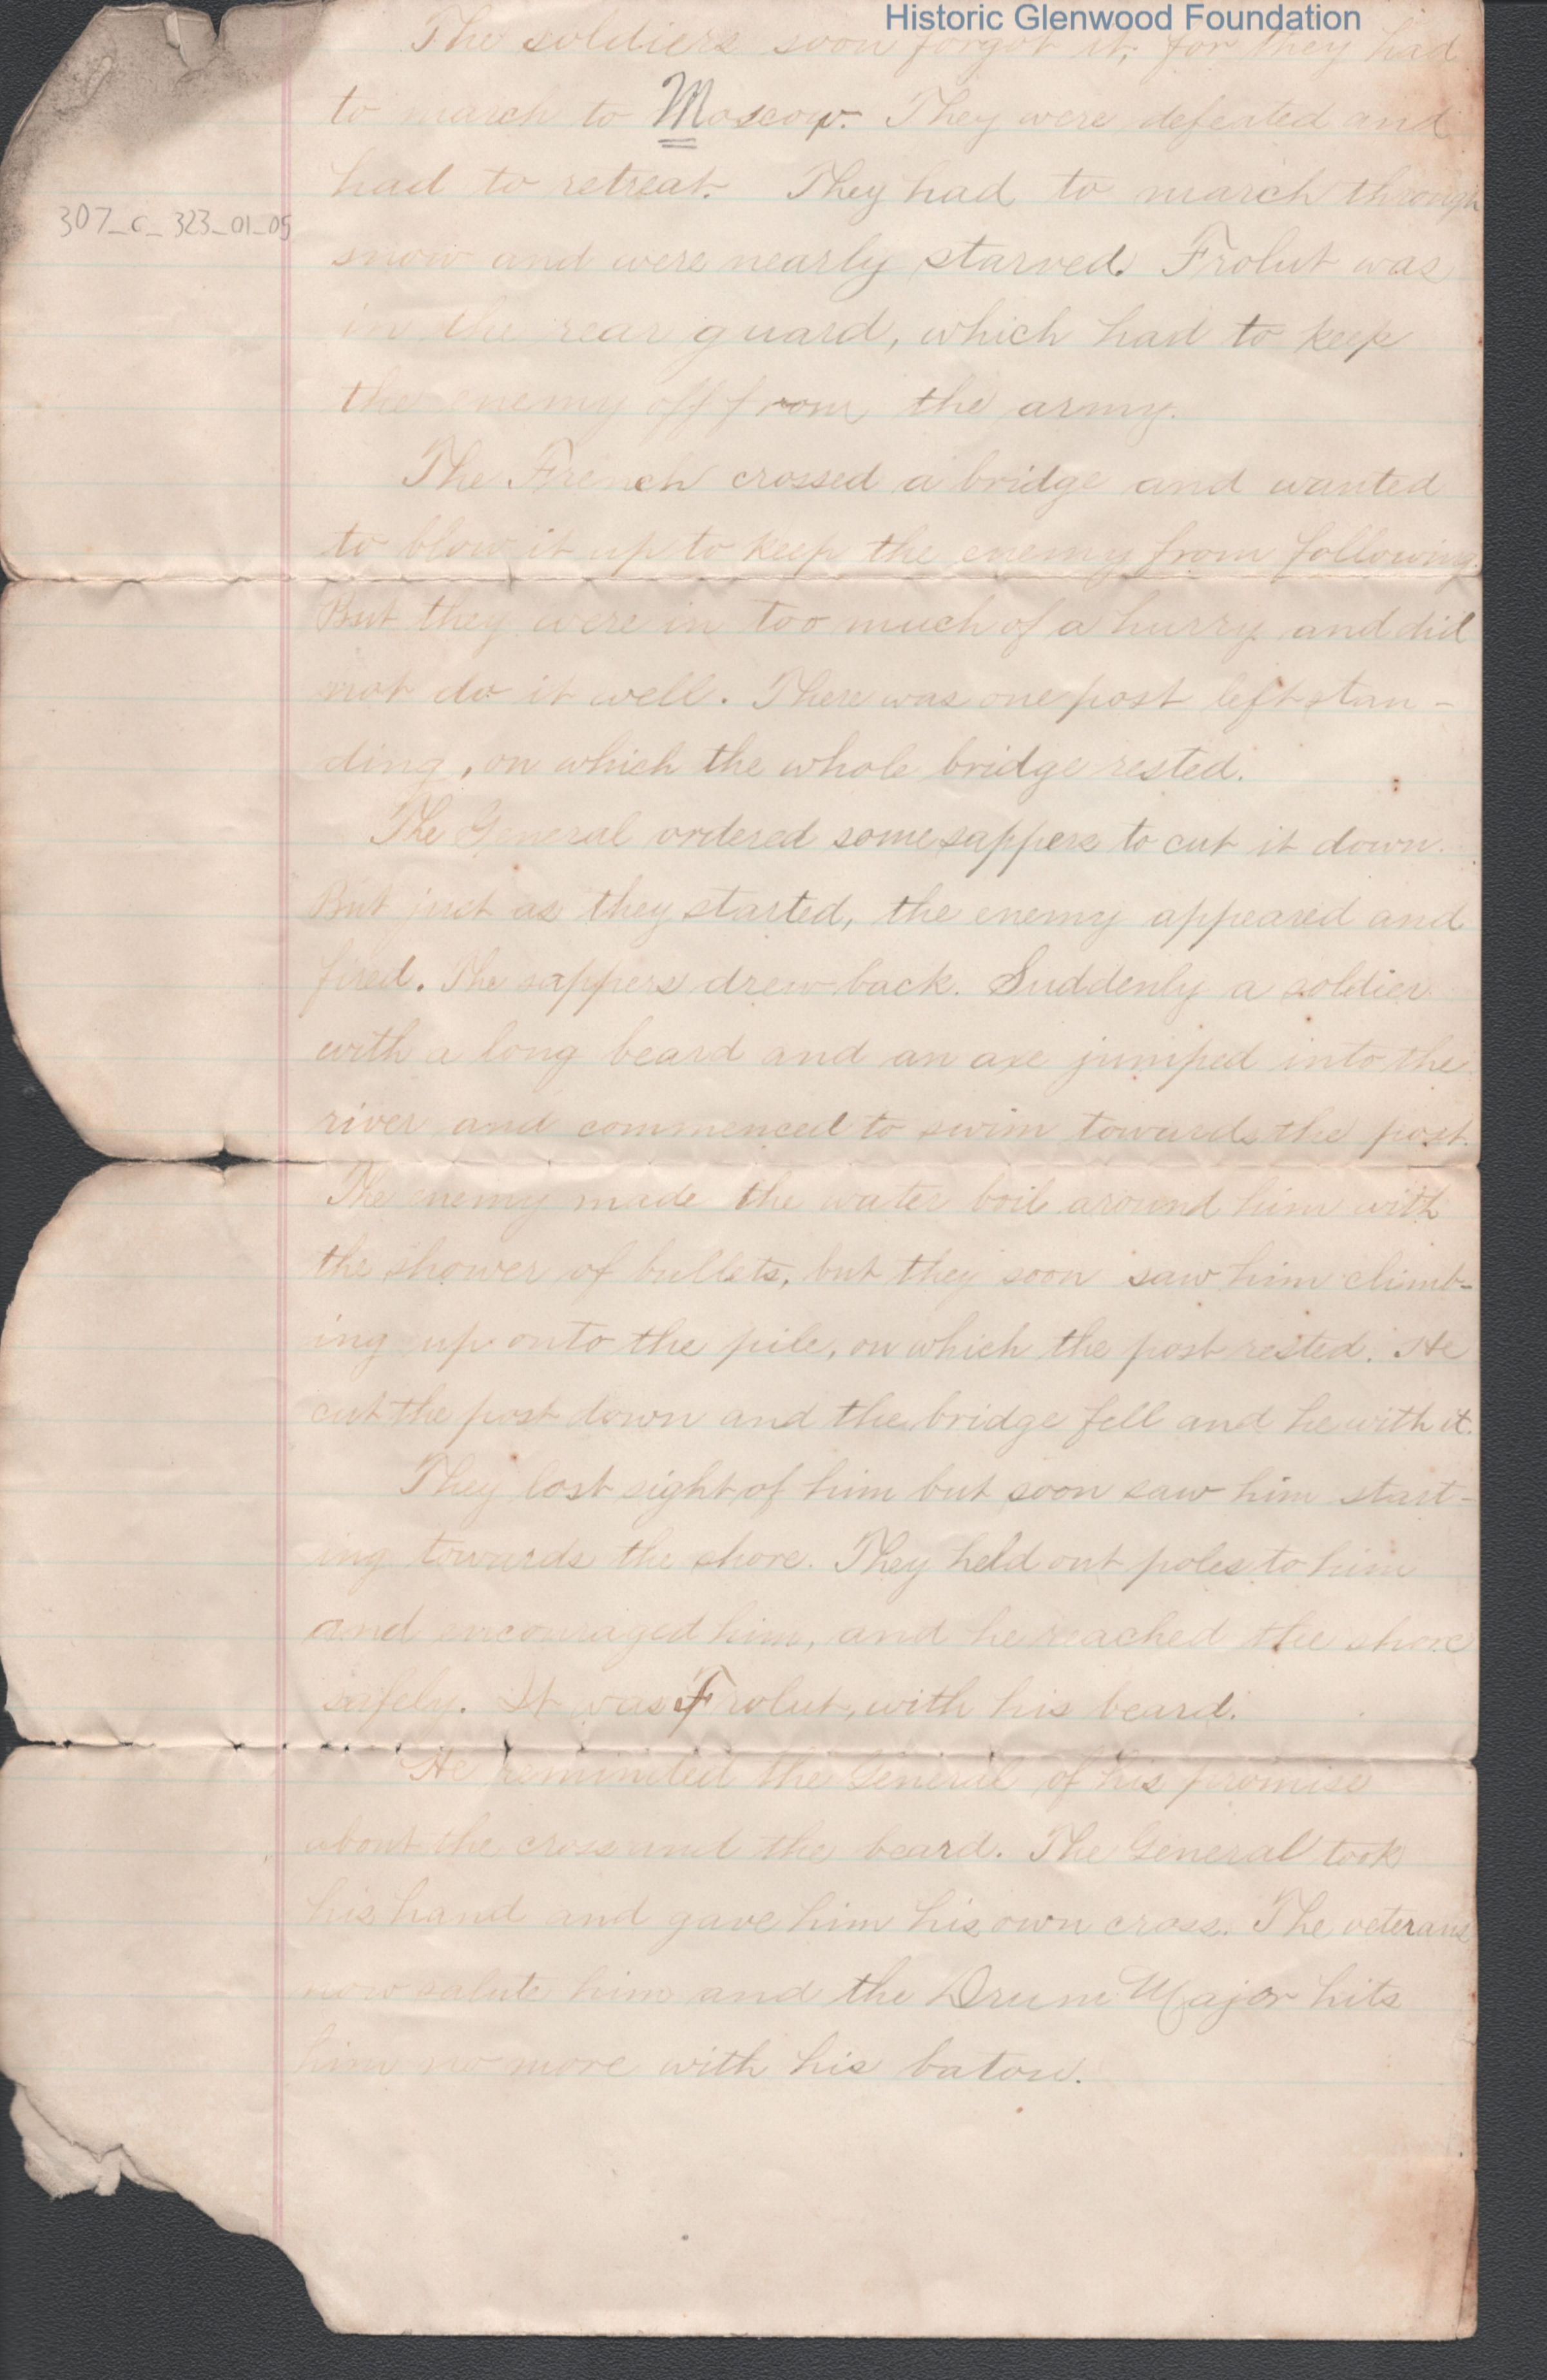 Historic Glenwood Foundation
The soldiers soon forgot it, for they had
to march to Moscow. They were defeated and
had to retreat. They had to march through
307_c_323_01_05
snow and were nearly starved. Frolut was
in the rear guard, which had to keep
the enemy off from the army.
The French crossed a bridge and wanted
to blow it up to keep the enemy from following.
But they were in too much of a hurry and did
not do it well. There was one post left stan-
ding, on which the whole bridge rested.
The General ordered some sappers to cut it down.
But just as they started, the enemy appeared and
fired. The sappers drew back. Suddenly a soldier
with a long beard and an axe jumped into the
river and commenced to swim towards the post.
The enemy made the water boil around him with
the shower of bullets, but they soon saw him climb-
ing up onto the pile, on which the post rested. He
cut the post down and the bridge fell and he with it.
They lost sight of him but soon saw him start-
ing towards the shore. They held out poles to him
and encouraged him, and he reached the shore
safely. It was Frolut, with his beard.
He reminded the General of his promise
about the cross and the beard. The General took
his hand and gave him his own cross. The veterans
now salute him and the Drum Major hits
him no more with his baton.